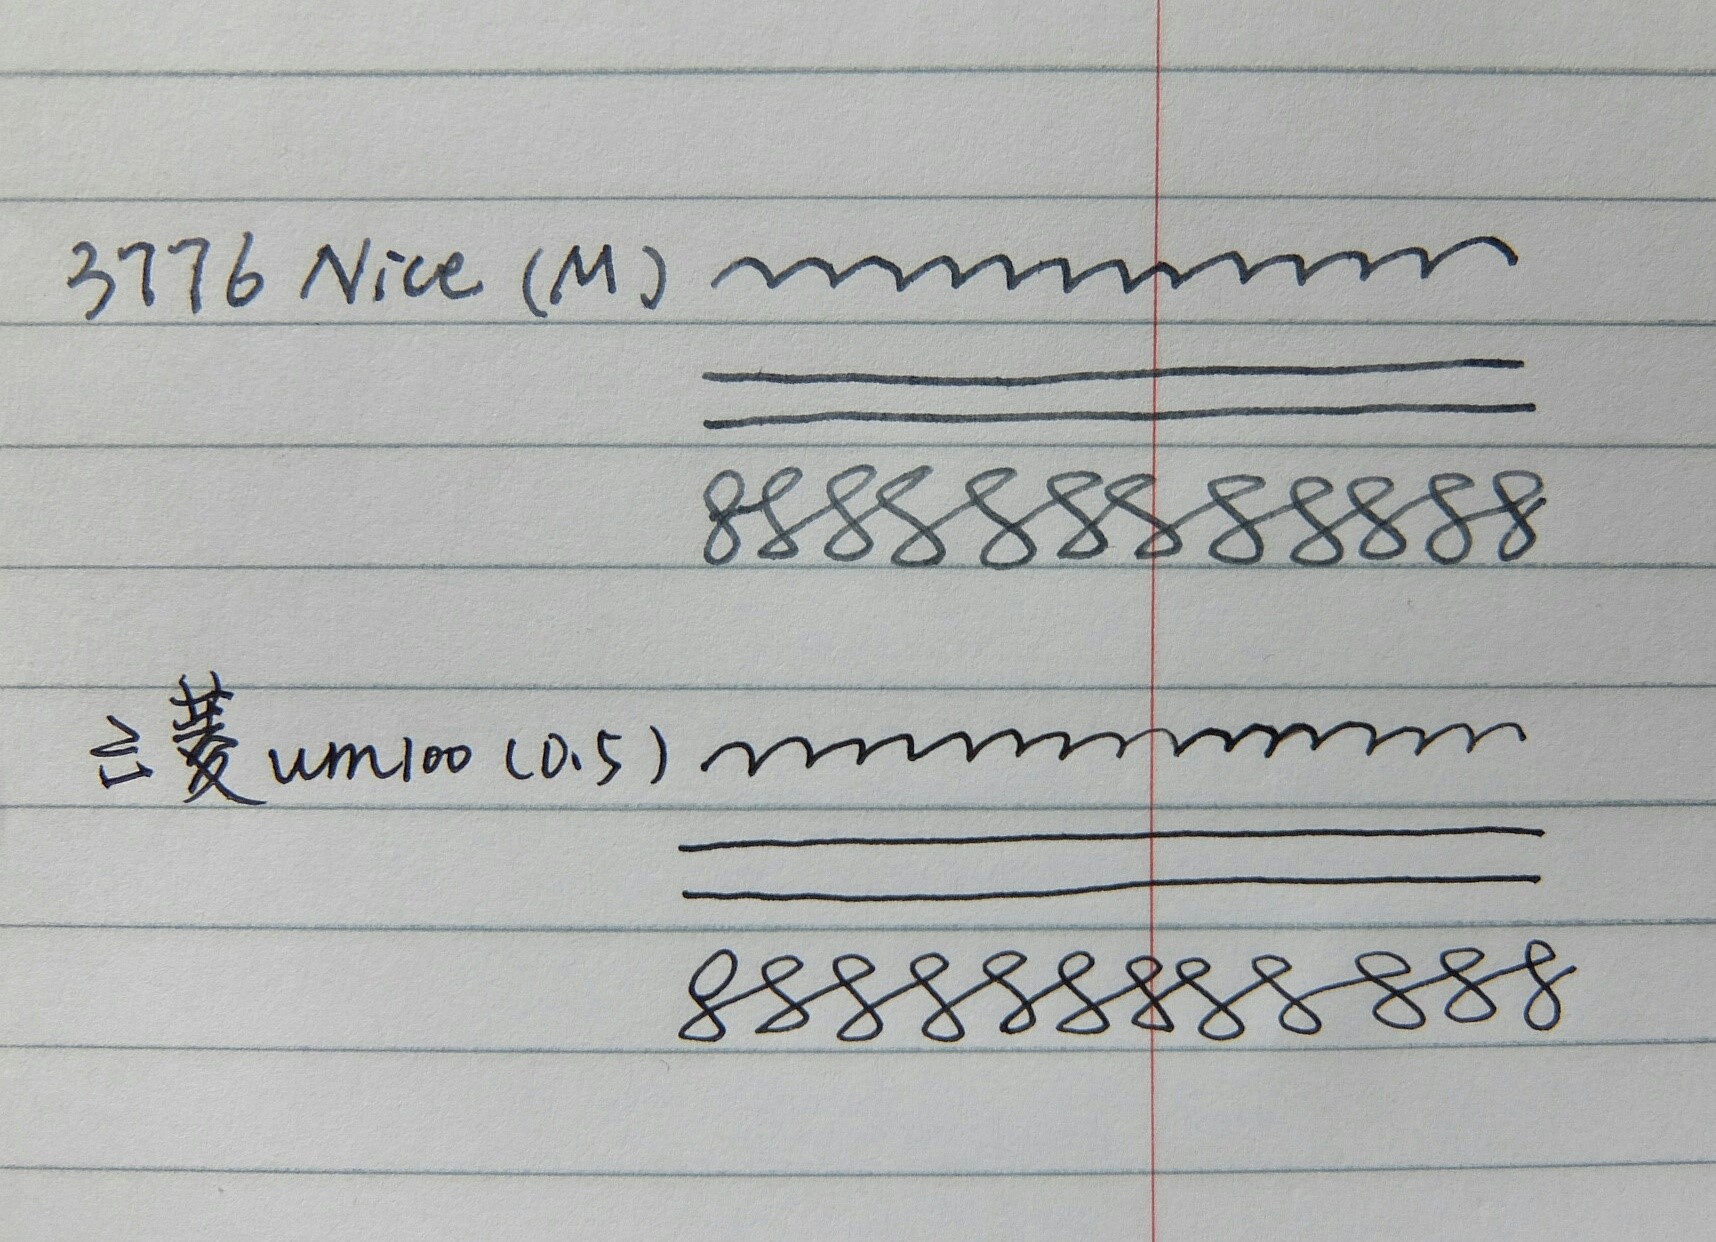 3776 Nice (M)
888888888888
三菱 um100 (0.5)
888888888888